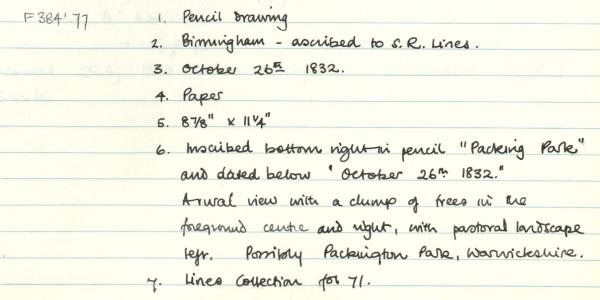 F384'77 1. Pencil Drawing
2. Birmingham - ascribed to S.R. Lines.
3. October 26th 1832.
4. Paper
5. 8 7/8" x 11 1/4"
6. Inscribed bottom right in pencil "Packing Park"
and dated below "October 26th 1832."
A rural view with a clump of trees in the
foreground centre and right, with pastoral landscape
left. Possibly Packington Park, Warwickshire.
7. Lines Collection fol 71.